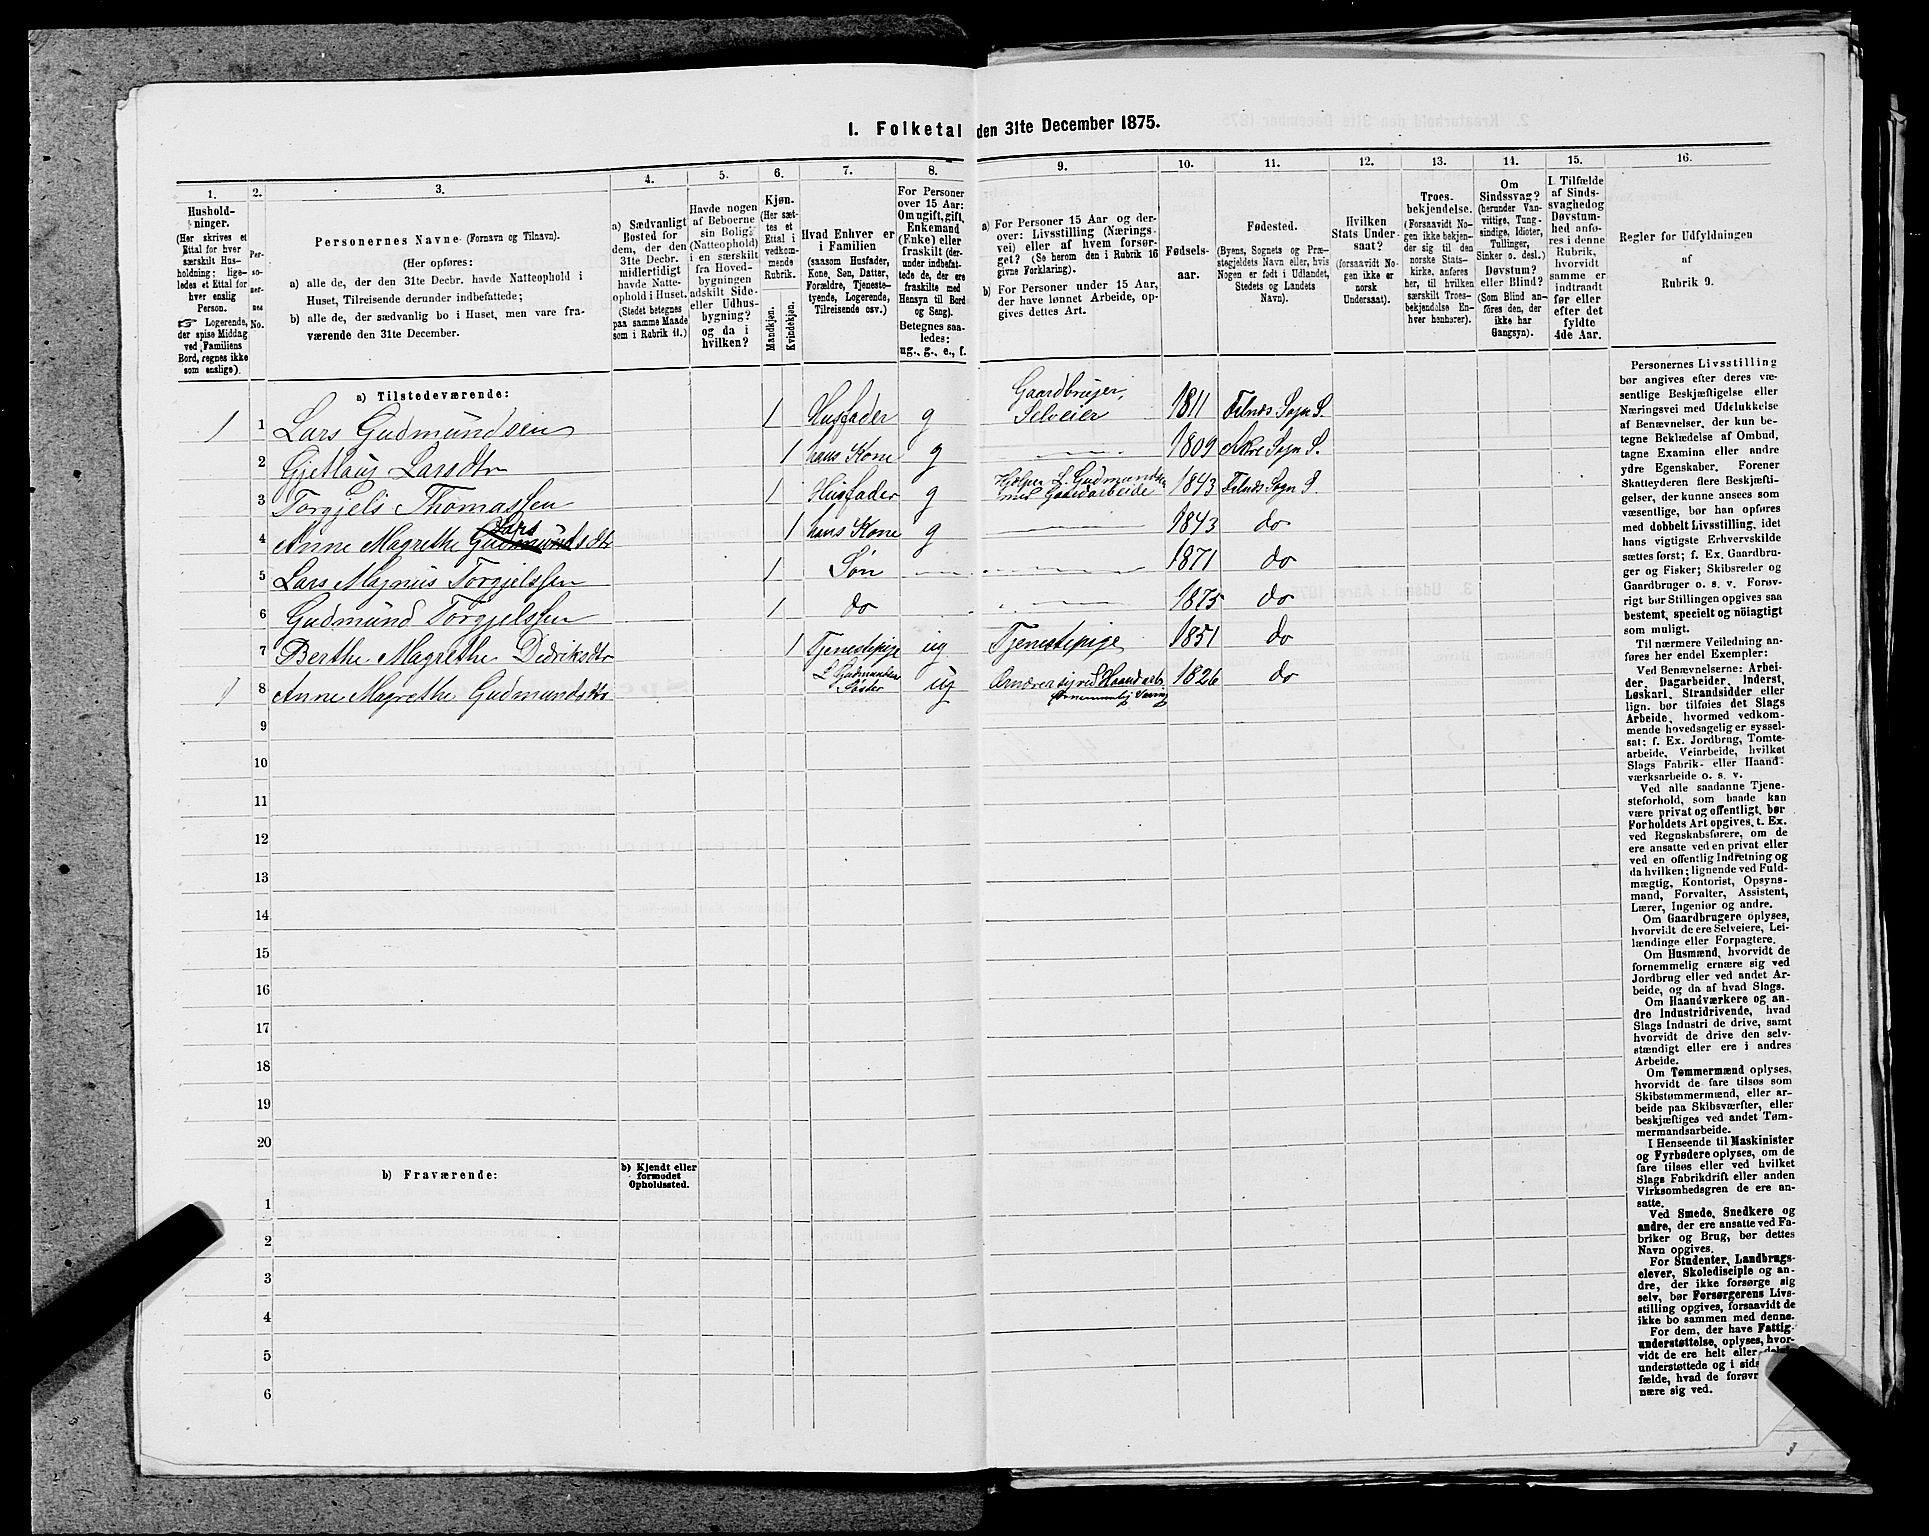 I. Folketal den 31te December 1875.
1. 2. 3. 4. 5. 6. 7. 8. 9. 10. 11. 12. 13. 14. 15. 16.
Hushold-
ninger.
(Her skrives et
Ettal for hver
særskilt Hus-
holdning; lige-
ledes et Ettal for
hver enslig
Person.
☞ Logerende,
der spise Middag
ved Familiens
Bord, regnes ikke
som enslige).
Per-
so-
ner-
nes
No.
Personernes Navne (Fornavn og Tilnavn).
(Her opføres:
a) alle de, der den 31te Decbr. havde Natteophold i
Huset, Tilreisende derunder indbefattede;
b) alle de, der sædvanlig bo i Huset, men vare fra-
værende den 31te December.
a) Sædvanligt
Bosted for
dem, der den
31te Decbr.
midlertidigt
havde Natte-
ophold i Huset.
(Stedet betegnes
paa samme Maade
som i Rubrik 11.)
Havde nogen
af Beboerne
sin Bolig
(Natteophold)
i en særskilt
fra Hoved-
bygningen
adskilt Side-
eller Udhus-
bygning?
og da i
hvilken?
Kjøn.
(Her sæt-
tes et
Ettal i
vedkom-
mende
Rubrik.
Mandkjøn.
Kvindekjøn.
Hvad Enhver er
i Familien
(saasom Husfader,
Kone, Søn, Datter,
Forældre, Tjeneste-
tyende, Logerende,
Tilreisende osv.)
For Personer
over 15 Aar:
Om ugift, gift,
Enkemand
(Enke) eller
fraskilt (der-
under indbefat-
tede de, der ere
fraskilte med
Hensyn til Bord
og Seng).
Betegnes saa-
ledes:
ug., g., e., f.
a) For Personer 15 Aar og der-
over: Livsstilling (Nærings-
vei) eller af hvem forsør-
get? (Se herom den i Rubrik 16
givne Forklaring).
b) For Personer under 15 Aar,
der have lønnet Arbeide, op-
gives dettes Art.
Fødsels-
aar.
Fødested.
(Byens, Sognets og Præ-
stegjeldets Navn eller, hvis
Nogen er født i Udlandet,
Stedets og Landets
Navn).
Hvilken
Stats Under-
saat?
(forsaavidt No-
gen ikke er
norsk
Undersaat).
Troes-
bekjendelse.
(Forsaavidt No-
gen ikke bekjen-
der sig til den
norske Stats-
kirke, anføres
her, til hvilken
særskilt Troes-
bekjendelse En-
hver henhører).
Om
Sindssvag?
(herunder Van-
vittige, Tung-
sindige, Idioter,
Tullinger,
Sinker o. desl.)
Døvstum?
eller Blind?
(Som Blind an-
føres den, der
ikke har
Gangsyn).
I Tilfælde
af Sinds-
svaghed og
Døvstum-
hed anfø-
res i denne
Rubrik,
hvorvidt
samme er
indtraadt
før eller
efter det
fyldte
4de Aar.
Regler for Udfyldningen
af
Rubrik 9.
a) Tilstedeværende:
1 1 Lars Gudmundsen 1 Husfader g Gaardbruger, Selveier 1811 Følnæs Sogn S.
2 Gjetlaug Larsdtr 1 hans Kone g 1809 Sogn S.
3 Torgjels Thomassen 1 Husfader g Hjelper L. Gudmundsen med Gaardarbeide 1843 Følnæs Sogn S.
4 Anne Magrethe Gudmunds Larsdtr 1 hans Kone g 1843 do
5 Lars Magnus Torgjelssen 1 Søn 1871 do
6 Gudmund Torgjelssen 1 do 1875 do
7 Berthe Magrethe Didriksdtr 1 Tjenestepige ug Tjenestepige 1851 do
1 8 Anne Magrethe Gudmundsdtr L Gudmundsen Søster ug Ernærer sig ved Haandarb. fornemmelig 1826 do
9
10
11
12
13
14
15
16
17
18
19
20
b) Fraværende:
b) Kjendt eller
formodet
Opholdssted.
1
2
3
4
5
6
Personernes Livsstilling
bør angives efter deres væ-
sentlige Beskjæftigelse eller
Næringsvei med Udelukkelse
af Benævnelser, der kun be-
tegne Beklædelse af Ombud,
tagne Examina eller andre
ydre Egenskaber. Forener
Skatteyderen flere Beskjæfti-
gelser, der kunne ansees som
væsentlige, bør han opføres
med dobbelt Livsstilling, idet
hans vigtigste Erhvervskilde
sættes først; f. Ex. Gaardbru-
ger og Fisker; Skibsreder og
Gaardbruger o. s. v. Forøv-
rigt bør Stillingen opgives saa
bestemt, specielt og nöiagtigt
som muligt.
Til nærmere Veiledning an-
føres her endel Exempler:
Ved Benævnelserne: Arbei-
der, Dagarbeider, Inderst,
Løskarl, Strandsidder eller
lign. bør tilføies det Slags
Arbeide, hvormed vedkom-
mende hovedsagelig er syssel-
sat; f. Ex. Jordbrug, Tomte-
arbeide, Veiarbeide, hvilket
Slags Fabrik- eller Haand-
værksarbeide o. s. v.
Ved alle saadanne Tjene-
steforhold, som baade kan
være privat og offentligt, bør
Forholdets Art opgives, t. Ex.
ved Regnskabsførere, om de
ere ansatte ved en privat eller
ved en offentlig Indretning og
da hvilken; lignende ved Fuld-
mægtig, Kontorist, Opsyns-
mand, Forvalter, Assistent,
Lærer, Ingeniør og andre.
Om Gaardbrugere oplyses,
hvorvidt de ere Selveiere, Lei-
lændinge eller Forpagtere.
Om Husmænd, hvorvidt de
fornemmelig ernære sig ved
Jordbrug eller ved andet Ar-
beide, og da af hvad Slags.
Om Haandværkere og an-
dre Industridrivende, hvad
Slags Industri de drive, samt
hvorvidt de drive den selv-
stændigt eller ere i andres
Arbeide.
Om Tømmermænd oplyses,
hvorvidt de fare tilsøs som
Skibstømmermænd, eller ar-
beide paa Skibsværfter, eller
beskjæftiges ved andet Tøm-
mermandsarbeide.
I Henseende til Maskinister
og Fyrbødere oplyses, om de
fare tilsøs eller ved hvilket
Slags Fabrikdrift eller anden
Virksomhedsgren de ere an-
satte.
Ved Smede, Snedkere og
andre, der ere ansatte ved Fa-
briker og Brug, bør dettes
Navn opgives.
For Studenter, Landbrugs-
elever, Skoledisciple og an-
dre, der ikke forsørge sig
selv, bør Forsørgerens Livs-
stilling opgives, forsaavidt de
ikke bo sammen med denne.
For dem, der have Fattig-
understøttelse, oplyses, hvor-
vidt de ere helt eller
understøttede og i
fælde, hvad de
nære sig ved.
3